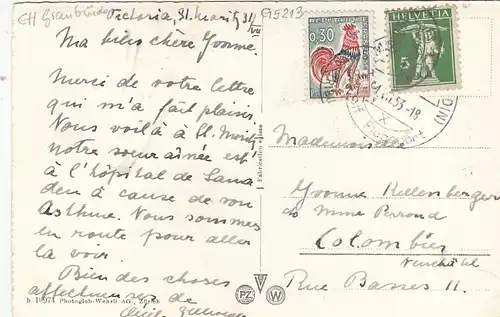 CH Graubünden
G5213
Victoria, St. Moritz 31/VII
Ma bien chère Yvonne.
Merci de votre lettre
qui m'a fait plaisir.
Nous voilà à St. Moritz
notre sœur aînée est
à l'hôpital de Sama
den à cause de son
Asthme. Nous sommes
en route pour aller
la voir.
Bien des choses
affectueuses de
b 10974 Photoglob-Wehrli AG., Zürich
Fabrication suisse
PZ W
0.30
HELVETIA
5
53-18
Mademoiselle
Yvonne Kellenberger
cs Mme Perrond
Colombier
Neuchâtel
Rue Basses 11.